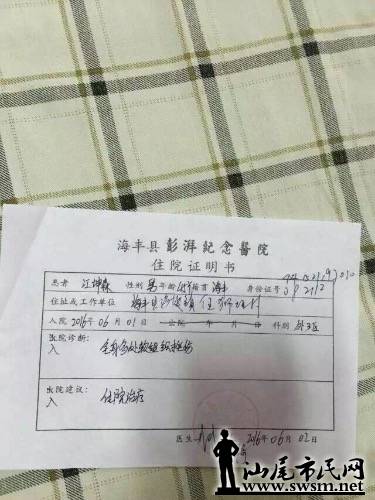 海丰县彭湃纪念醫院
住院证明书
患者 江坤森 性别 男 年龄 籍贯 海丰 身份证号
住址及工作单位 海丰县
入院 2016年06月01日 出院 年 月 日 科别 外三区
入院诊断:
全身多处软组织挫伤
出院建议:
住院治疗
医生 2016年06月02日
汕尾市民网
www.swsm.net